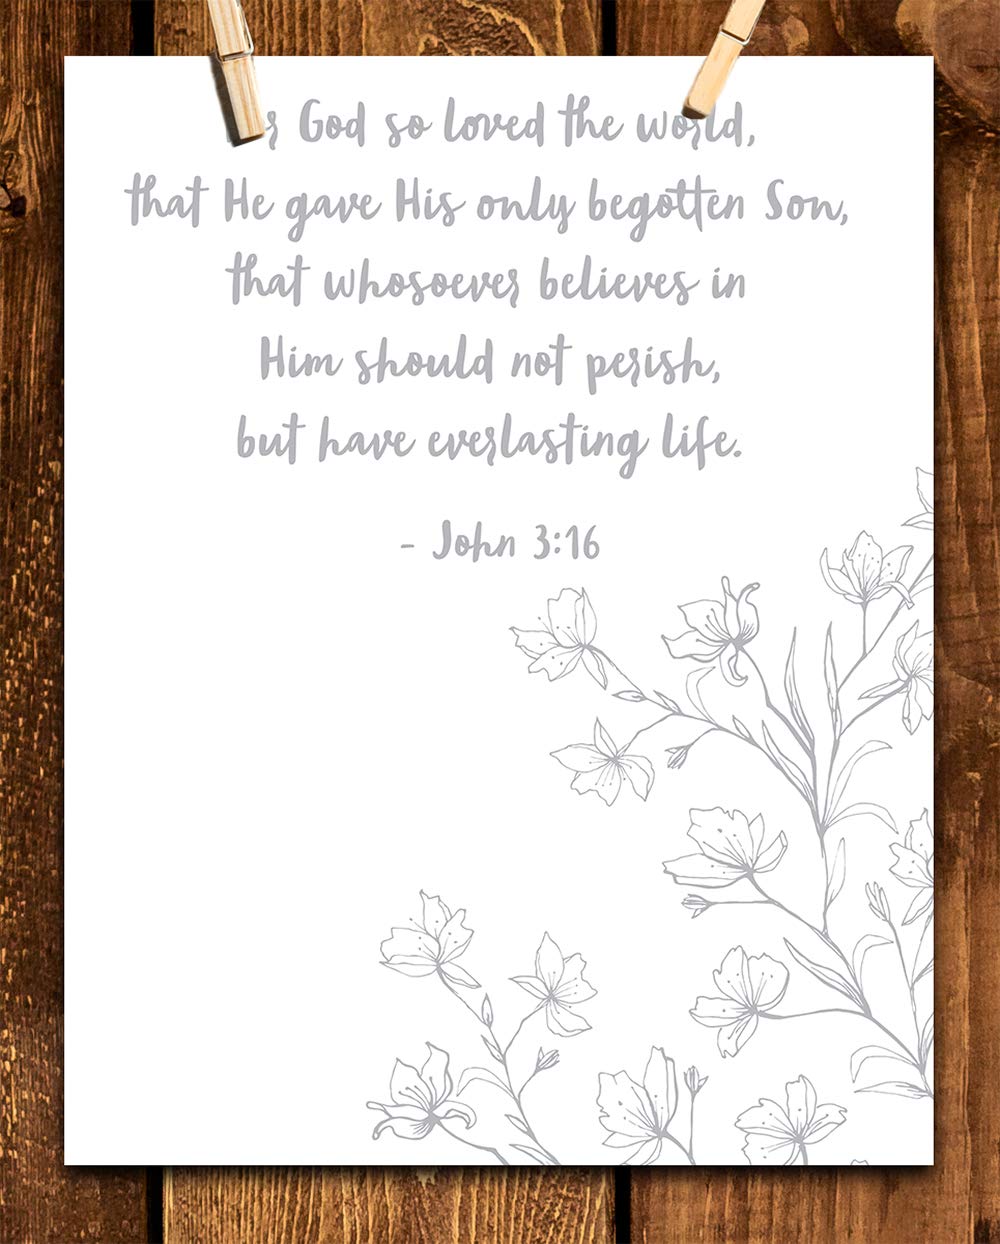 God so loved the world,
that He gave His only begotten Son,
that whosoever believes in
Him should not perish,
but have everlasting life.
- John 3:16